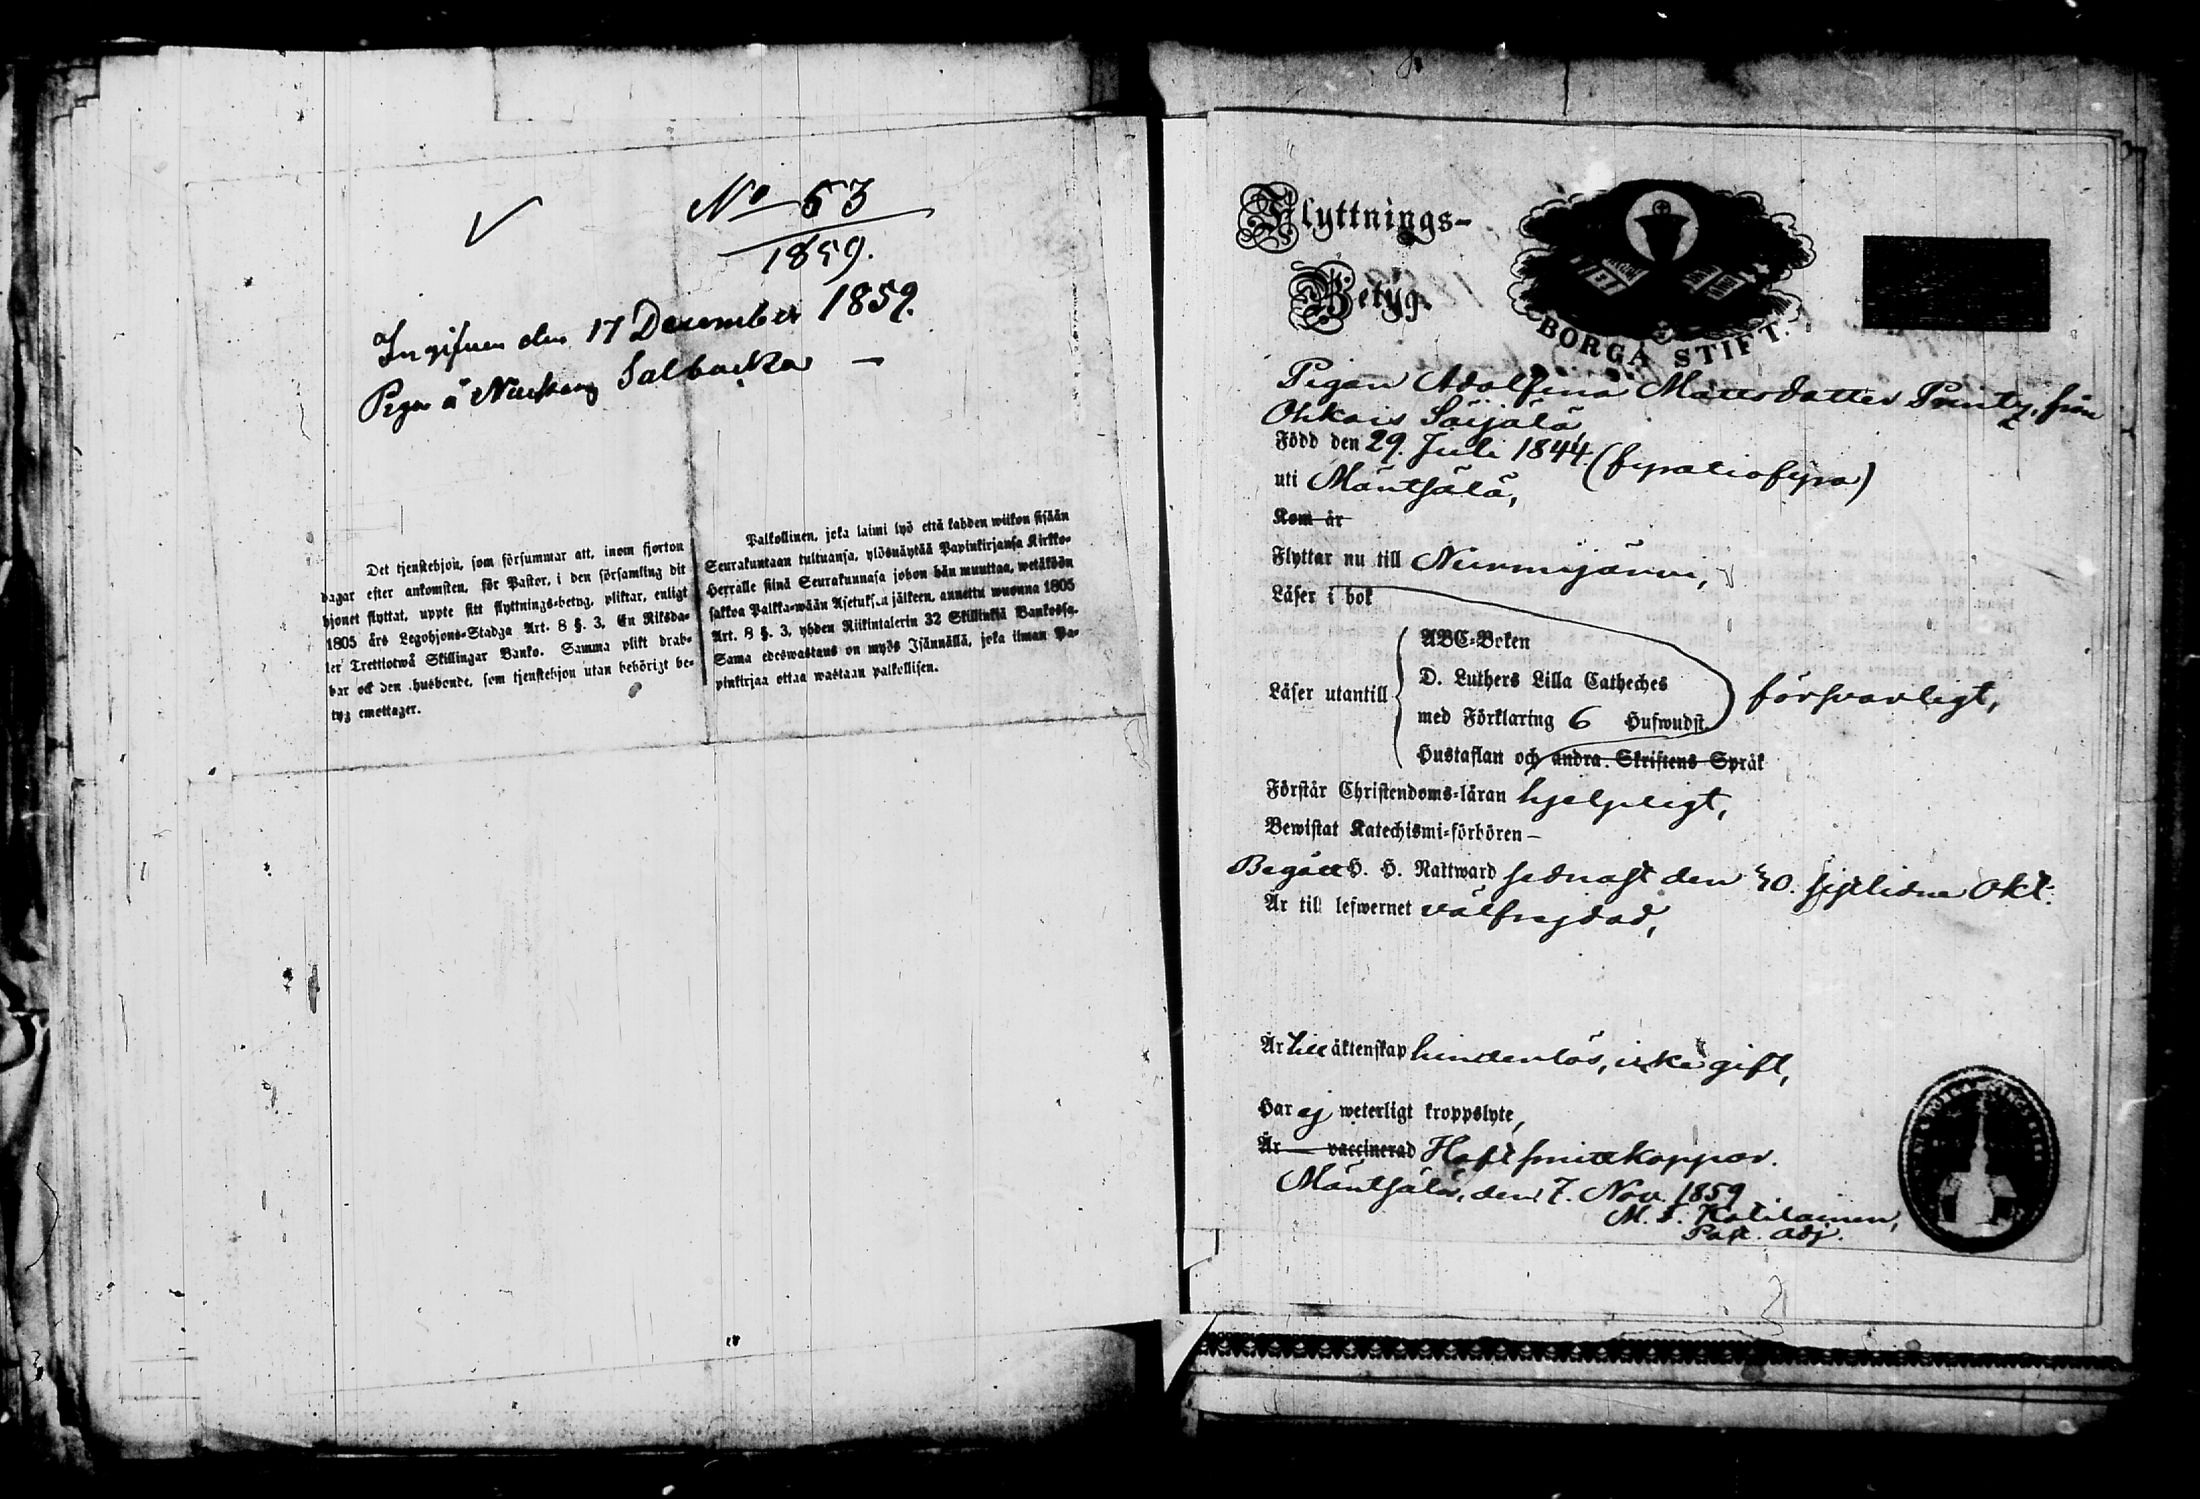 No 53
1859.
Ingifven den 17 December 1859.
Piga à Salbacka —
Det tjenstehjon, som försummar att, inom fjorton
dagar efter ankomsten, för Pastor, i den församling dit
hjonet flyttat, uppte sitt flyttnings-betyg, pliktar, enligt
1805 års Legohjons-Stadga Art. 8 §. 3, En Riksda-
ler Trettiotwå Skillingar Banko. Samma plikt drab-
bar ock den husbonde, som tjenstehjon utan behörigt be-
tyg emottager.
Palkollinen, joka laimi lyö että kahden wiikon sisään
Seurakuntaan tultuansa, ylösnäyttää Papinkirjansa Kirkko-
Herralle siinä Seurakunnasa johon hän muuttaa, wetäköön
sakkoa Palkka-wään Asetuksen jälkeen, annettu wuonna 1805
Art. 8 §. 3, yhden Riikintalerin 32 Skillinkiä Bankossa.
Sama edeswastaus on myös Isännällä, joka ilman Pa-
pinkirjaa ottaa wastaan palkollisen.
Flyttnings-
Betyg.
BORGÅ STIFT.
Pigan Adolfina Mattsdotter Printz, från
Ohkois Säijälä
Född den 29. Juli 1844 (fyratiofyra)
uti Mäntsälä,
Kom år
Flyttar nu till Nurmijärvi,
Läser i bok
ABC-Boken
D. Luthers Lilla Catheches
Läser utantill
med Förklaring 6 Hufwudst.
försvarligt,
Hustaflan och andra Skriftens Språk
Förstår Christendoms-läran hjelpligt,
Bewistat Katechismi-förhören —
Begått H. H. Nattward sednast den 30. sistlidne Okt.
Är till lefwernet välfrejdad,
Är till äktenskap hinderlös, icke gift,
Har ej weterligt kroppslyte,
Är — vaccinerad Haft smittkoppor.
Mäntsälä, den 7. Nov. 1859
M. Kotilainen,
Past. adj.